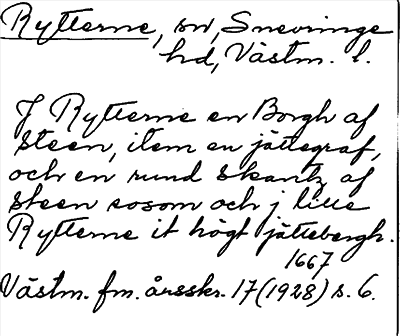 Rytterne, sn, Snevringe
hd, Västm. l.
J Rytterne en Borgh af
steen, item en jättegraf,
och en rund skantz af
steen sosom och j lille
Rytterne it högt jättebergh.
1667
Västm. fm. årsskr. 17 (1928) s. 6.